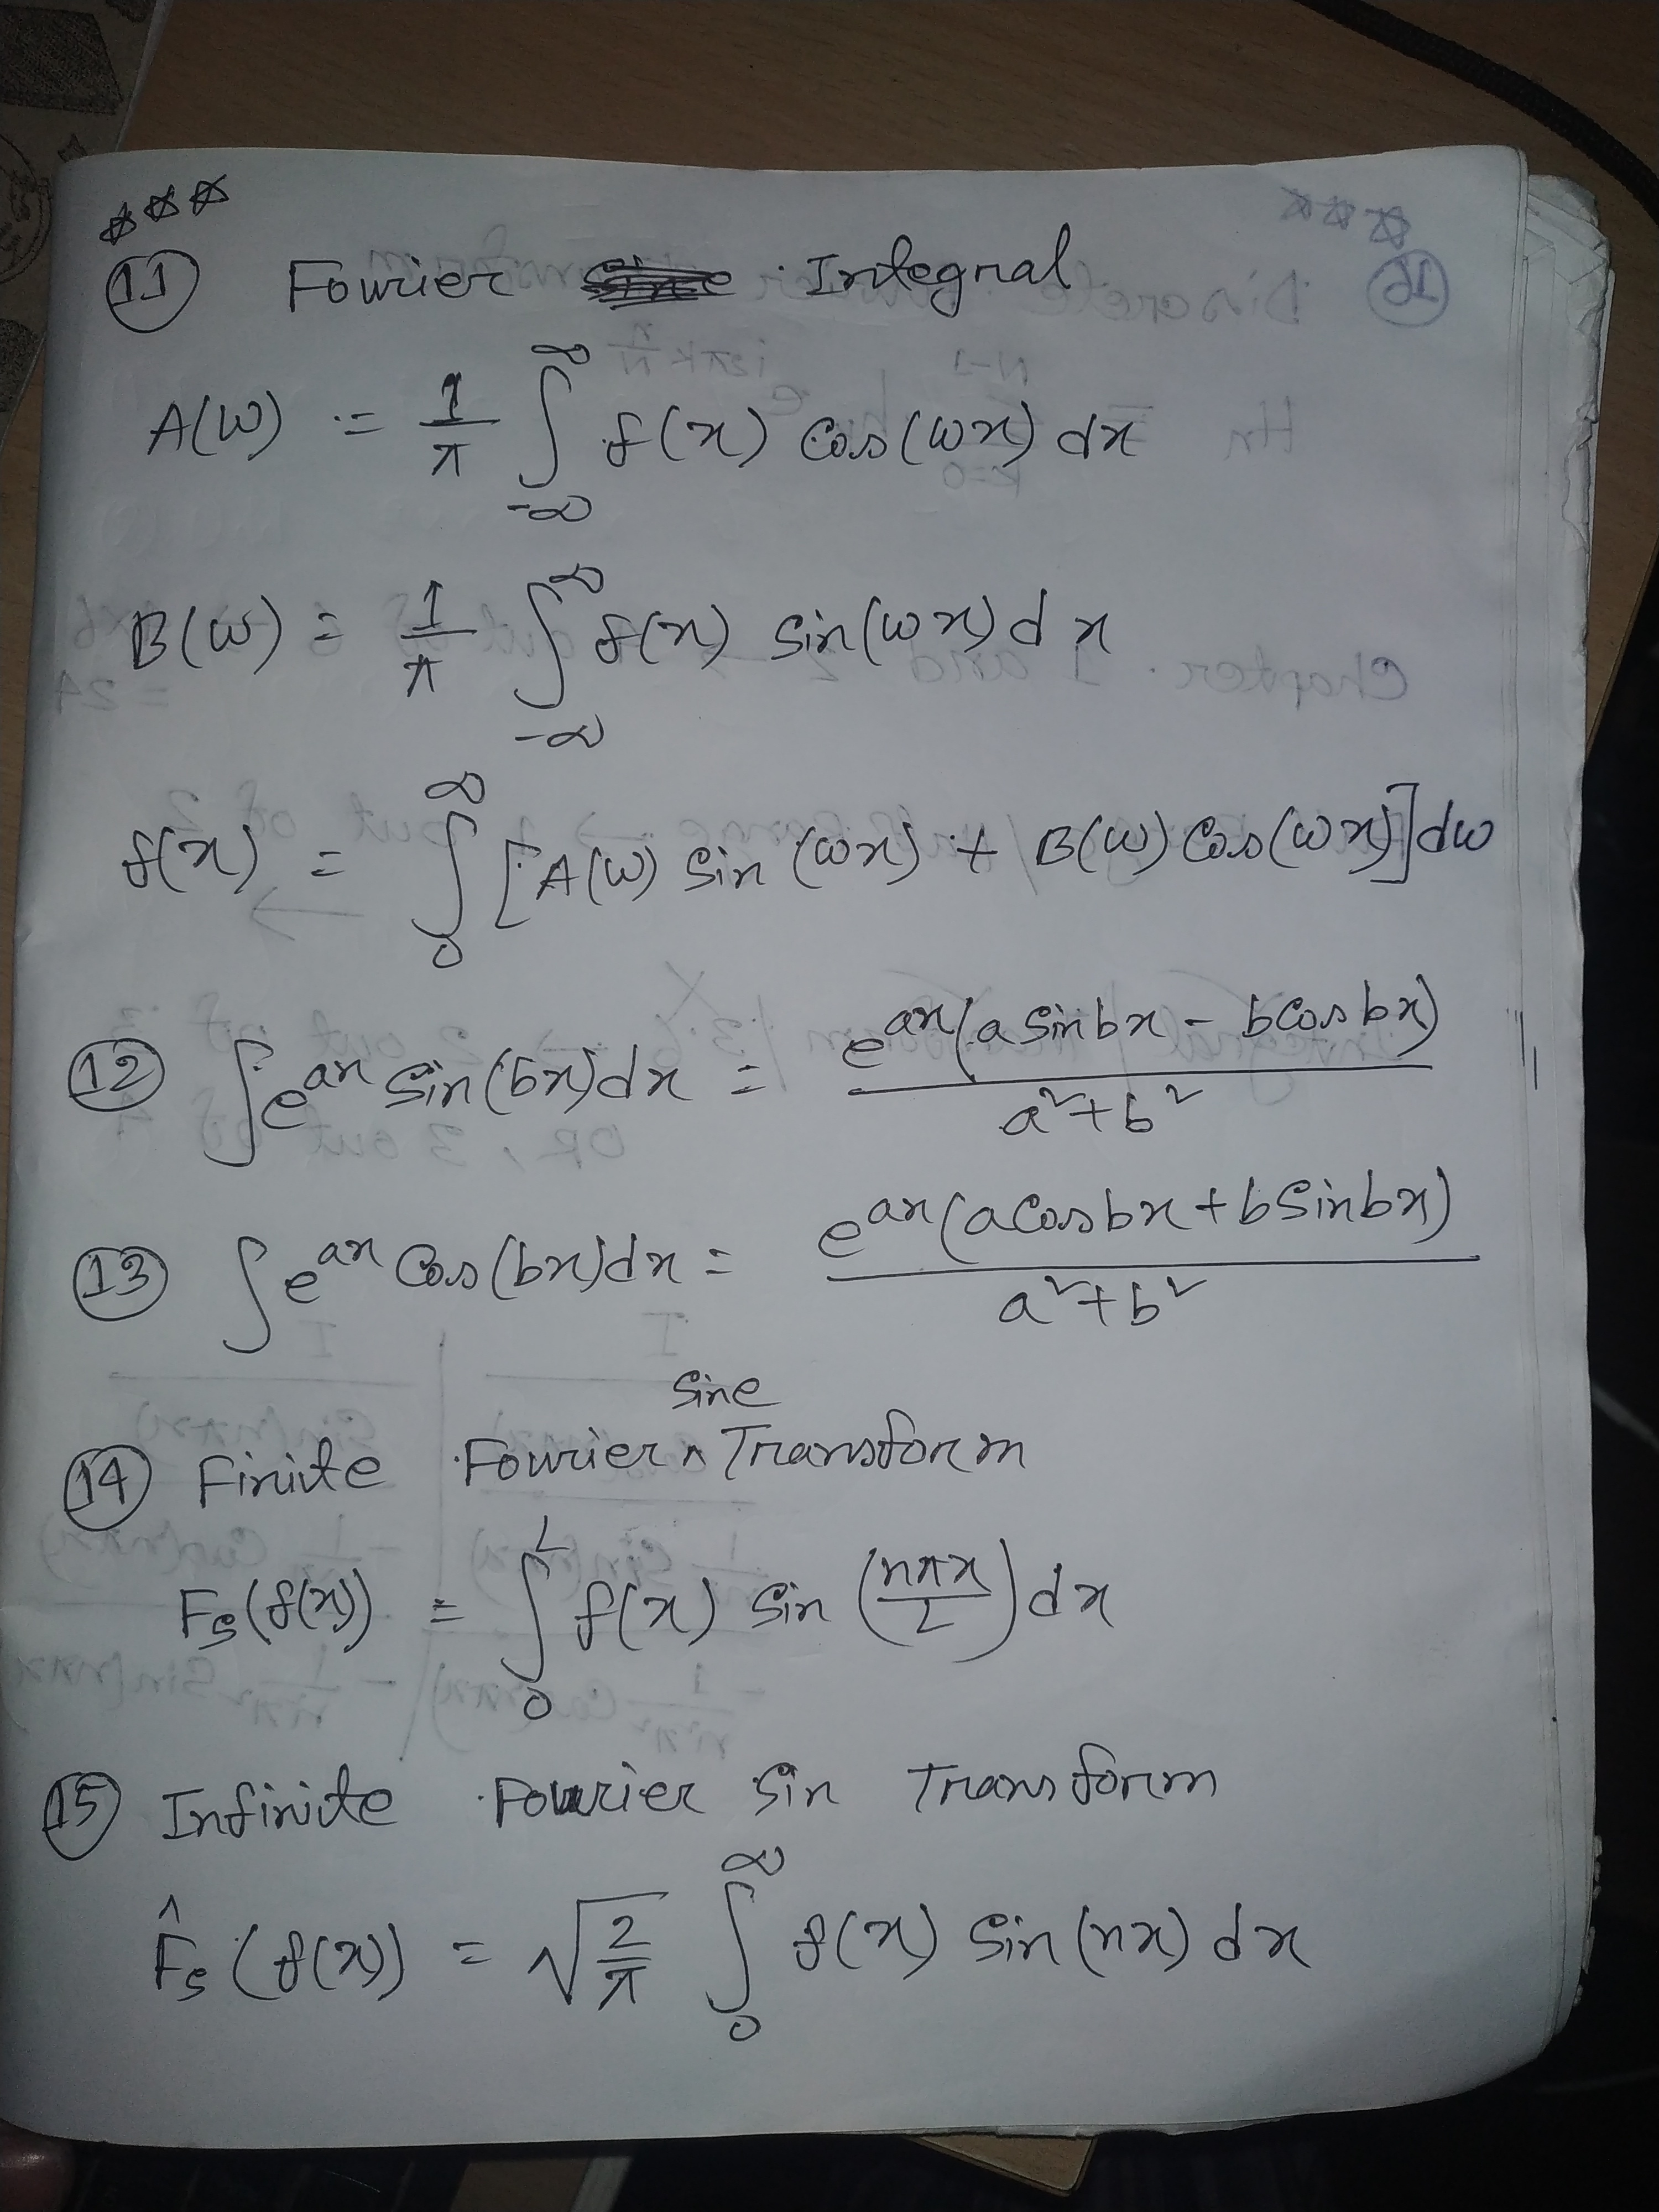 ☆☆☆
11 Fourier Integral
A(ω) = 1/π ∫_{-∞}^{∞} f(x) cos(ωx) dx
B(ω) = 1/π ∫_{-∞}^{∞} f(x) sin(ωx) dx
f(x) = ∫_{0}^{∞} [A(ω) sin(ωx) + B(ω) cos(ωx)] dω
12 ∫e^{ax} sin(bx)dx = e^{ax}(a sinbx - b cosbx) / a²+b²
13 ∫e^{ax} cos(bx)dx = e^{ax}(a cosbx + b sinbx) / a²+b²
14 Finite Fourier sine Transform
F_s(f(x)) = ∫_{0}^{L} f(x) sin(nπx/L) dx
15 Infinite Fourier Sin Transform
F̂_s(f(x)) = √(2/π) ∫_{0}^{∞} f(x) sin(nx) dx